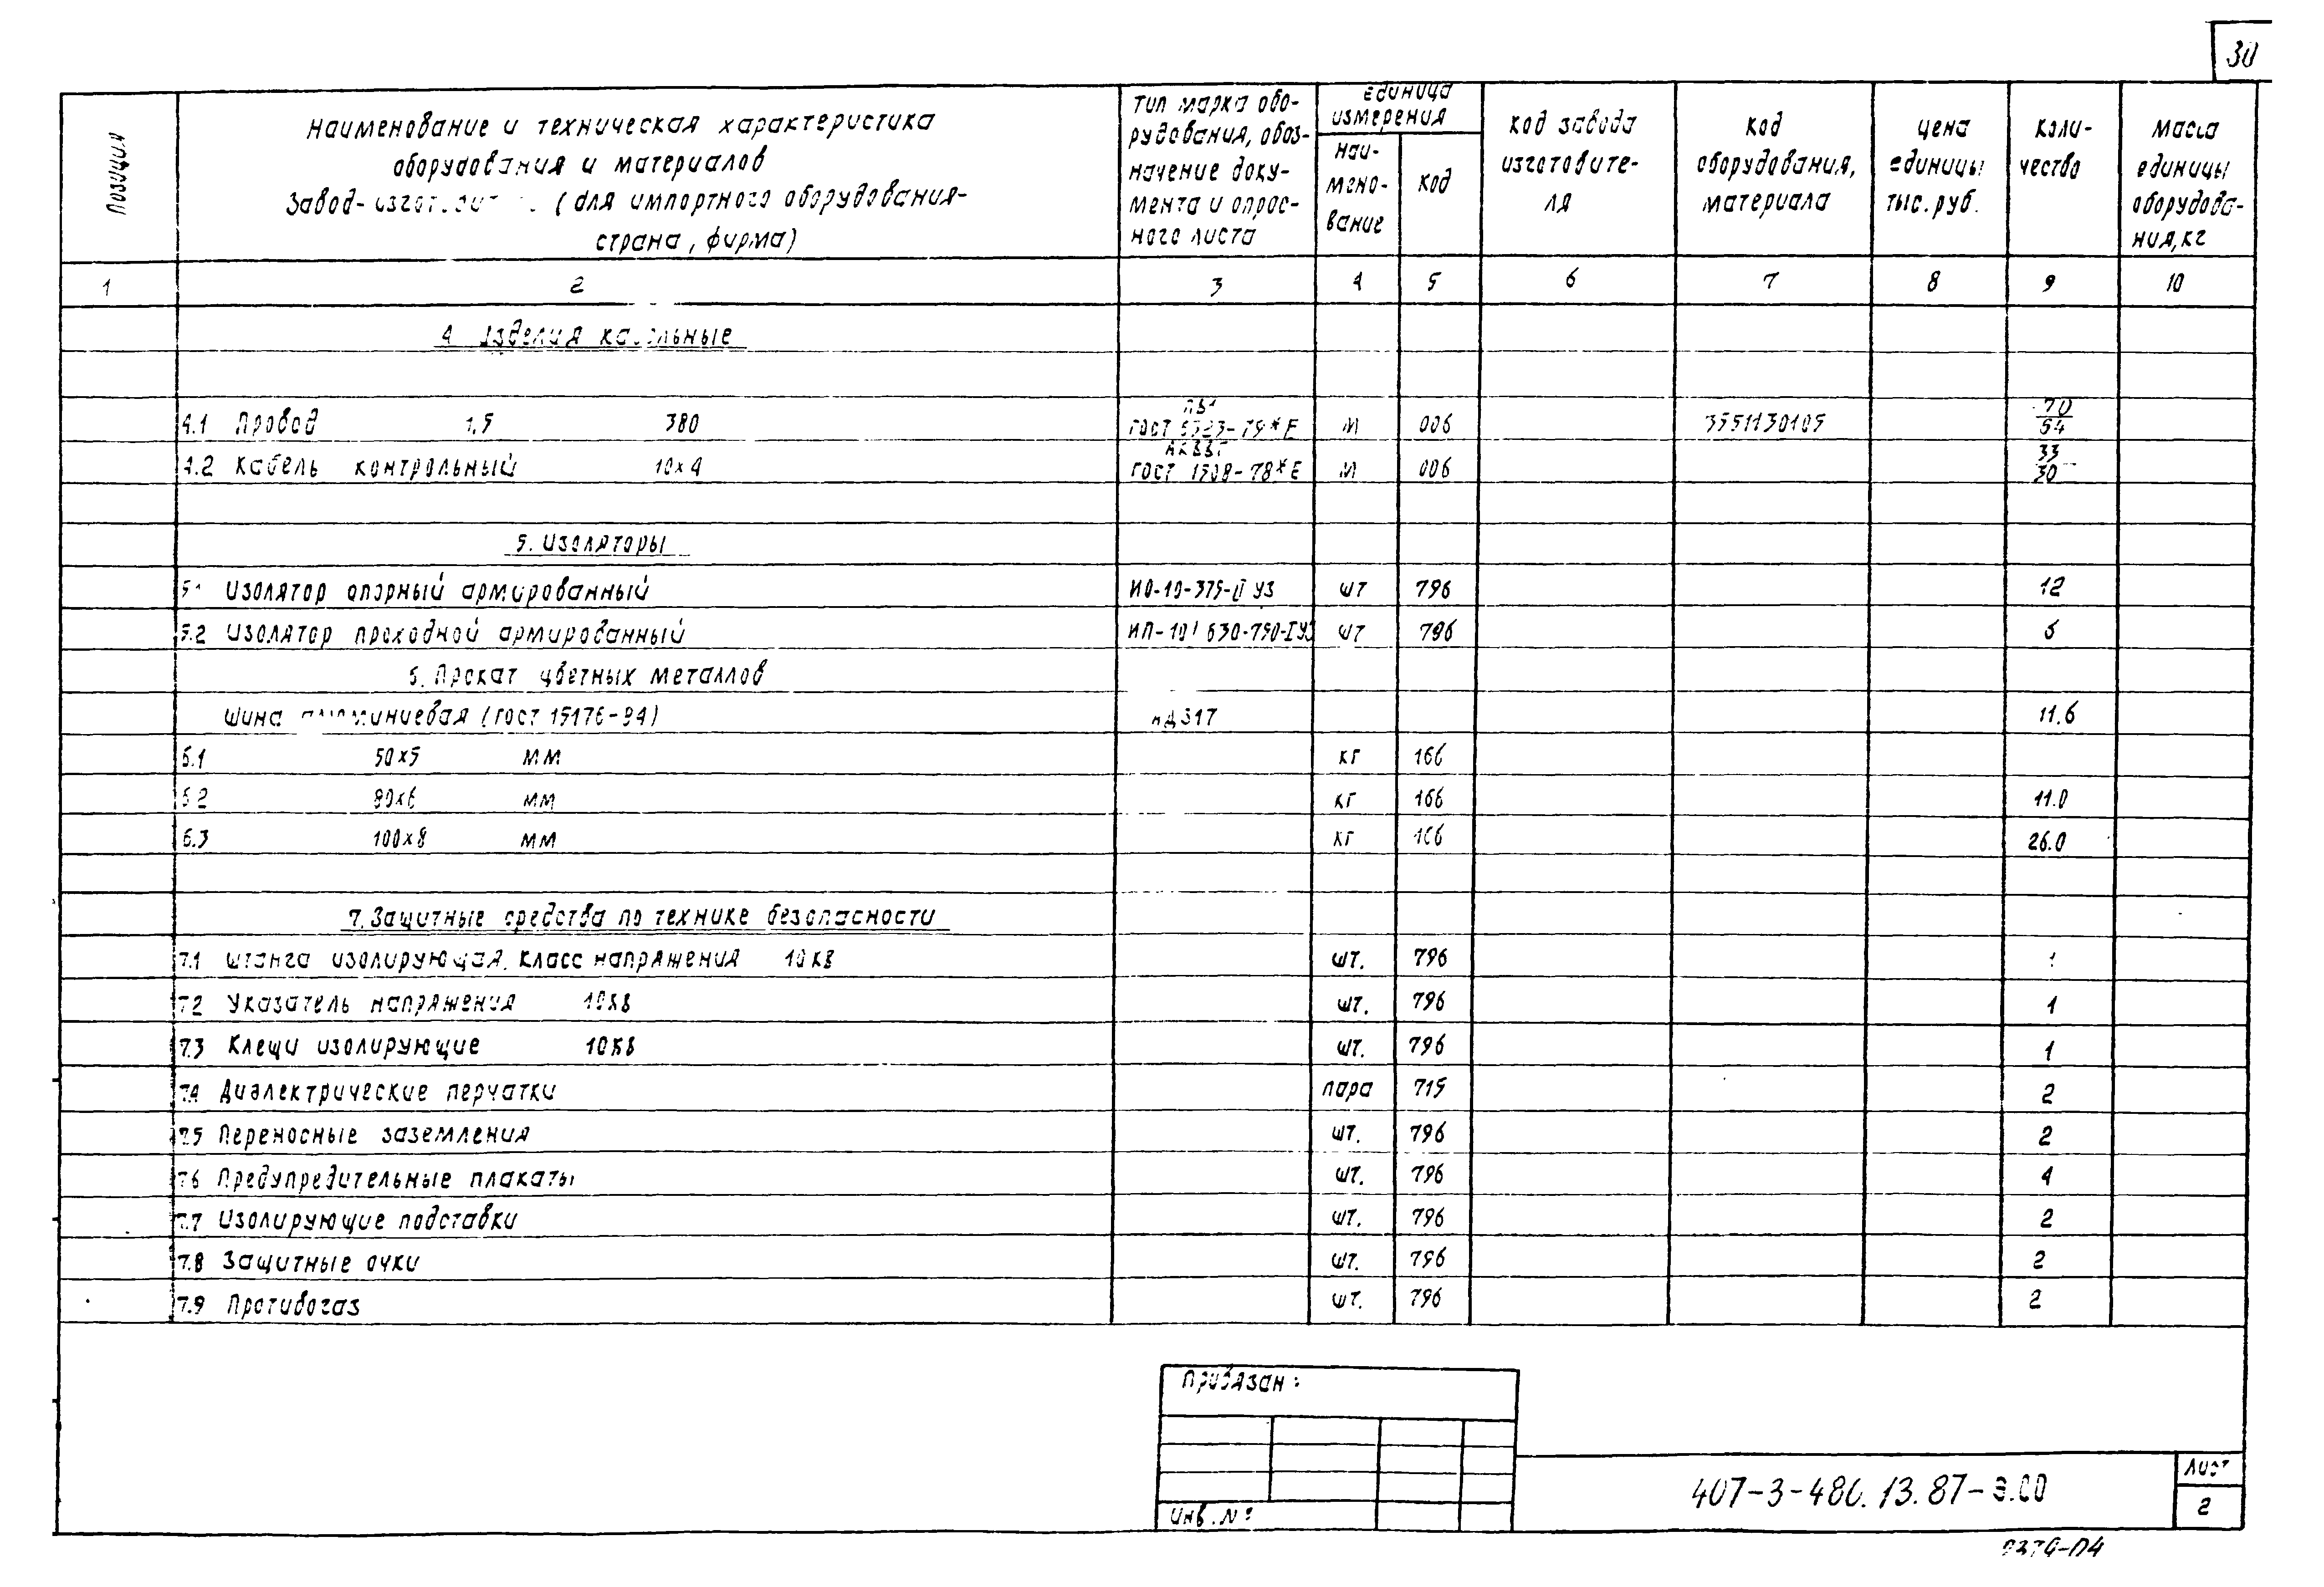 30
Позиция
Наименование и техническая характеристика
оборудования и материалов
Завод- (для импортного оборудования-
страна, фирма)
Тип марка обо-
рудования, обоз-
начение доку-
мента и опрос-
ного листа
Единица
измерения
Наи-
мено-
вание
Код
Код завода
изготовите-
ля
Код
оборудования,
материала
Цена
единицы
тыс.руб.
Коли-
чество
Масса
единицы
оборудова-
ния, кг
1 2 3 4 5 6 7 8 9 10
4 Изделия кабельные
4.1 Провод 1,5 380 ГОСТ 6323-79*Е м 006 3551130105 70/54
4.2 Кабель контрольный 10х4 АКВВГ ГОСТ 1508-78*Е м 006 33/30
5. Изоляторы
5.1 Изолятор опорный армированный ИО-10-375-II У3 шт 796 12
5.2 Изолятор проходной армированный ИП-10/630-750-IУ3 шт 796 6
6. Прокат цветных металлов
Шина алюминиевая (ГОСТ 15176-84) АД31Т 11.6
6.1 50х5 мм кг 166
6.2 80х6 мм кг 166 11.0
6.3 100х8 мм кг 166 26.0
7. Защитные средства по технике безопасности
7.1 Штанга изолирующая. Класс напряжения 10кВ шт. 796 1
7.2 Указатель напряжения 10кВ шт. 796 1
7.3 Клещи изолирующие 10кВ шт. 796 1
7.4 Диэлектрические перчатки пара 715 2
7.5 Переносные заземления шт. 796 2
7.6 Предупредительные плакаты шт. 796 4
7.7 Изолирующие подставки шт. 796 2
7.8 Защитные очки шт. 796 2
7.9 Противогаз шт. 796 2
Привязан:
Инв.№:
407-3-486.13.87-Э.СО
Лист
2